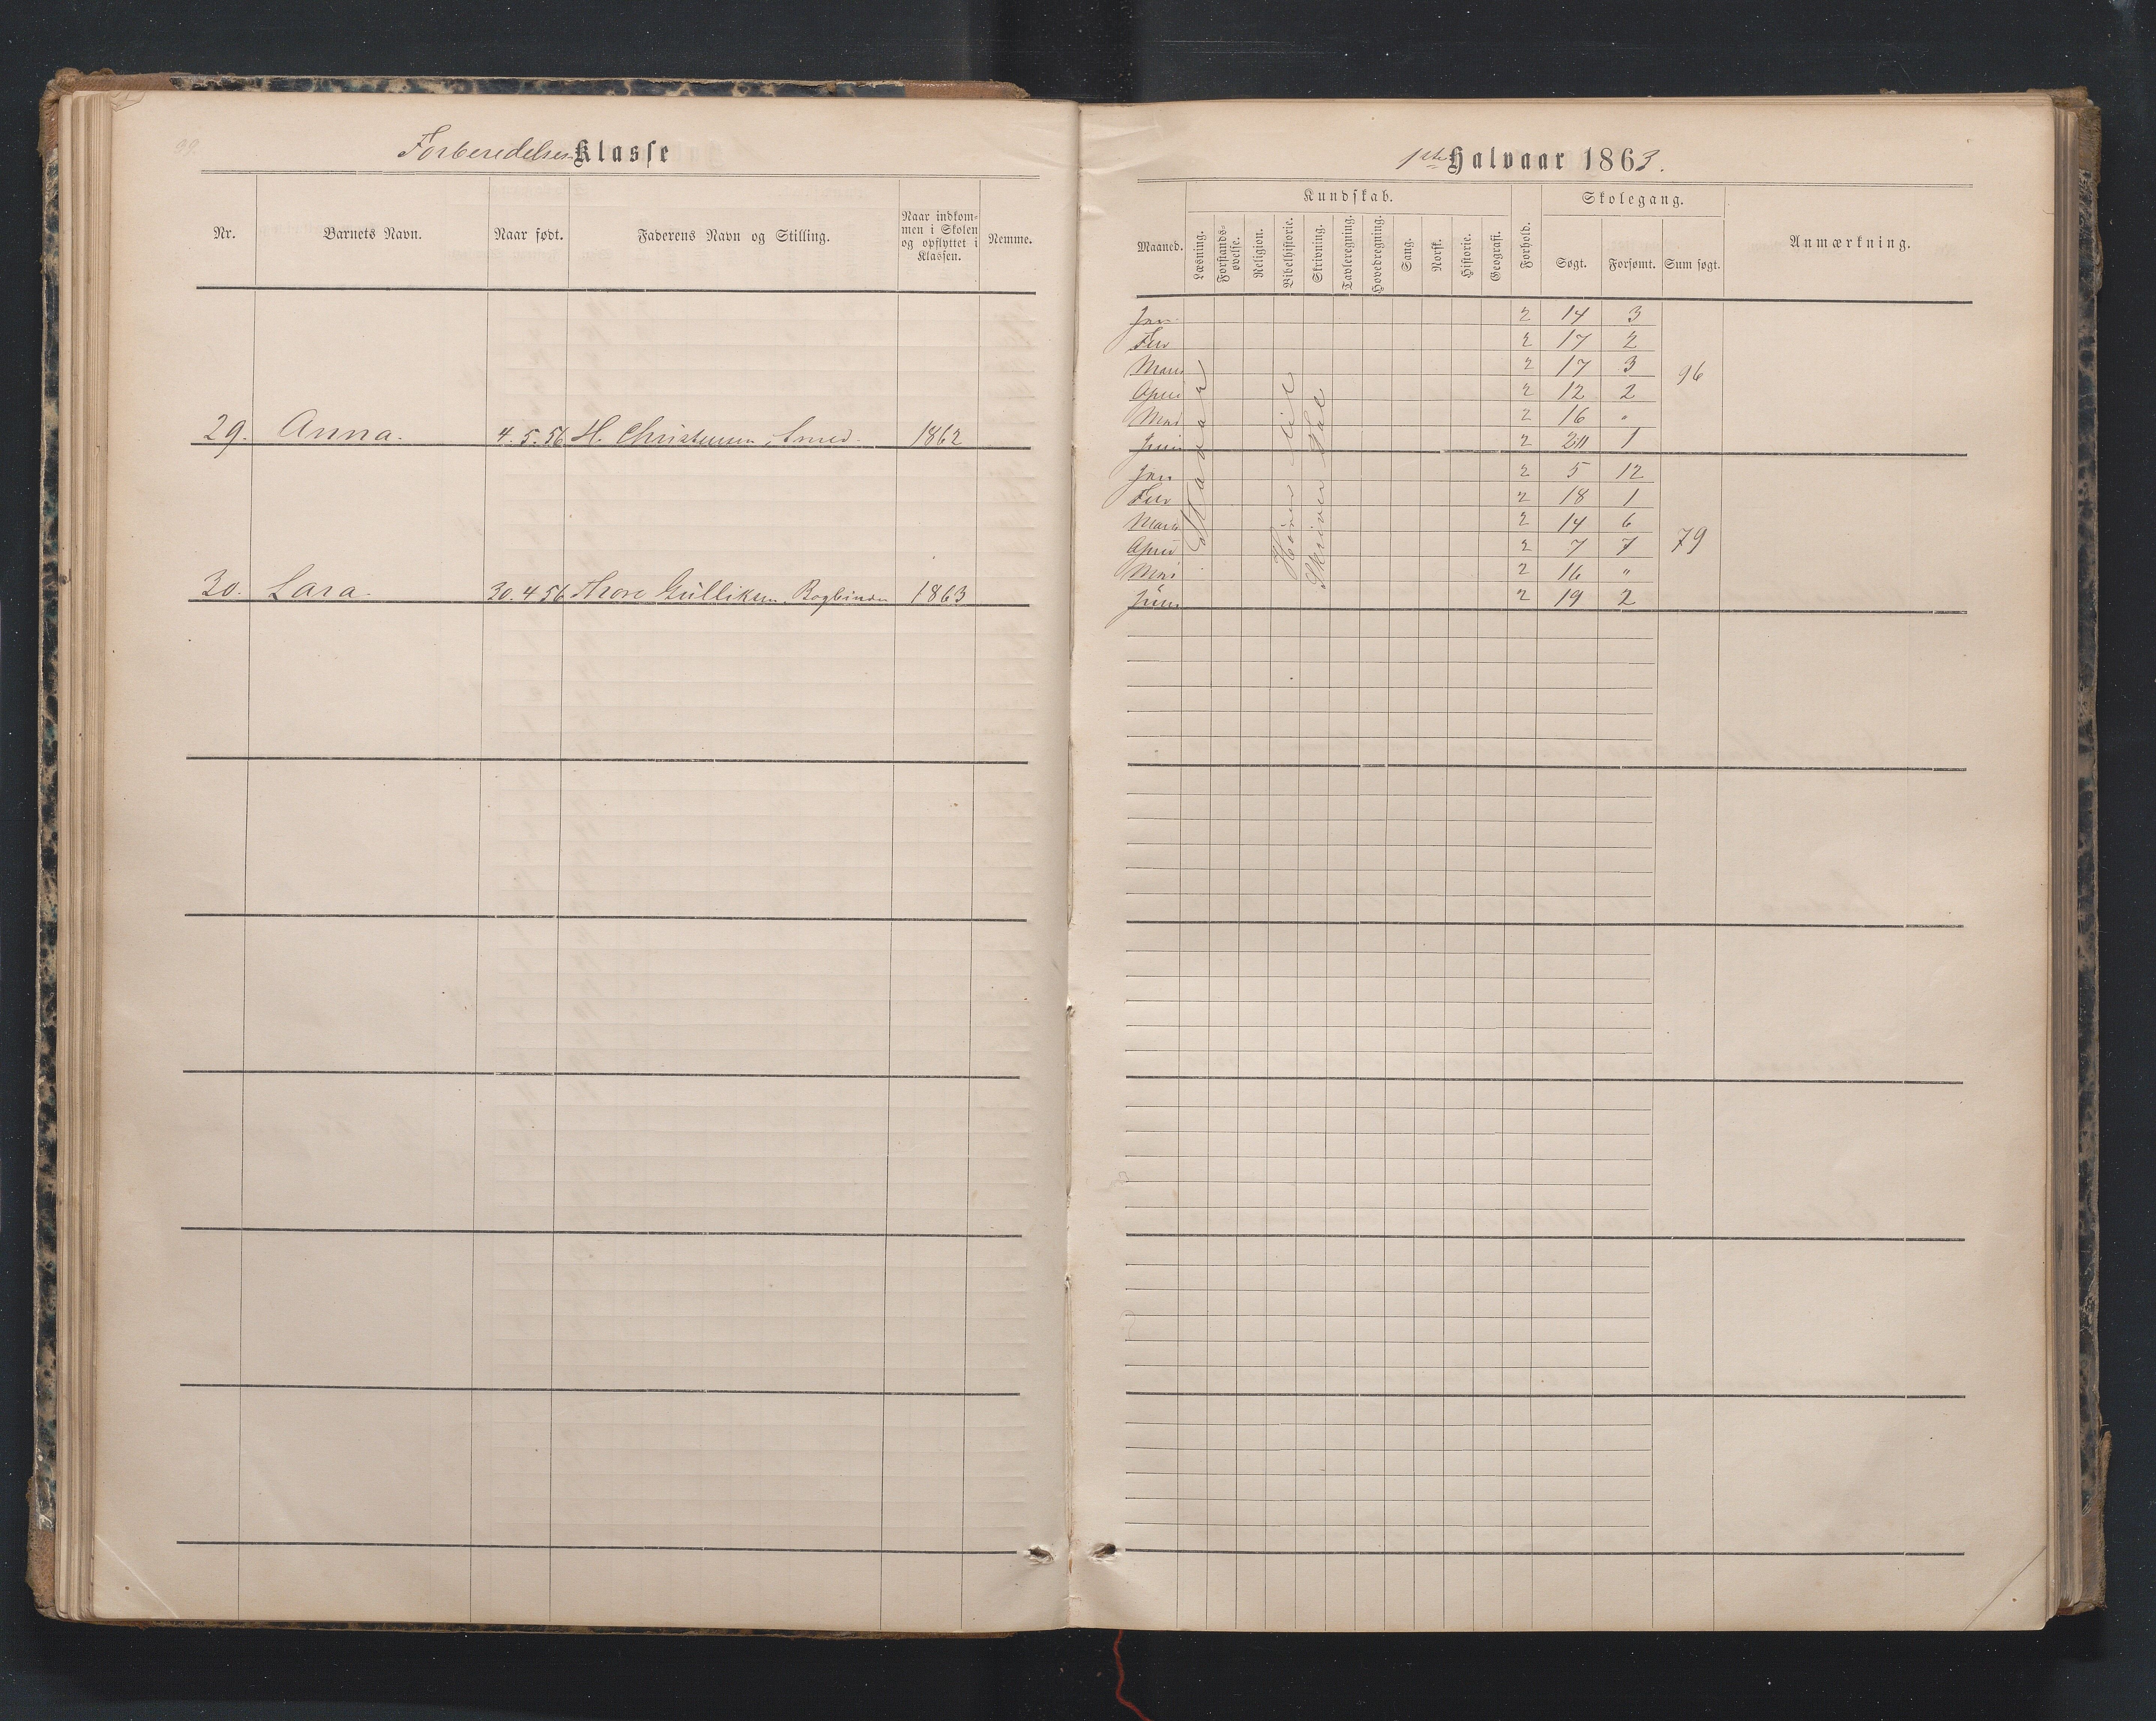 99.
Forberedelses Klasse
Nr. Barnets Navn. Naar født. Faderens Navn og Stilling. Naar indkommen i Skolen og opflyttet i Klassen. Nemme.
29. Anna. 4.5.56 H. Christensen, Smed. 1862
30. Lara. 30.4 56 Thore Gulliksen, Bogbinder 1863
1ste Halvaar 1863.
Kundskab. Skolegang.
Maaned. Læsning. Forstandsøvelse. Religion. Bibelhistorie. Skrivning. Tavleregning. Hovedregning. Sang. Norsk. Historie. Geografi. Forhold. Søgt. Forsømt. Sum søgt. Anmærkning.
Jan. 2 14 3
Feb 2 17 2
Marts 2 17 3 96
April 2 12 2
Mai 2 16 "
Juni 2 20 1
Jan 2 5 12
Feb 2 18 1
Marts 2 14 6
April 2 7 7 79
Mai 2 16 "
Juni 2 19 2
Stavar
Hører til
Skriver Tal